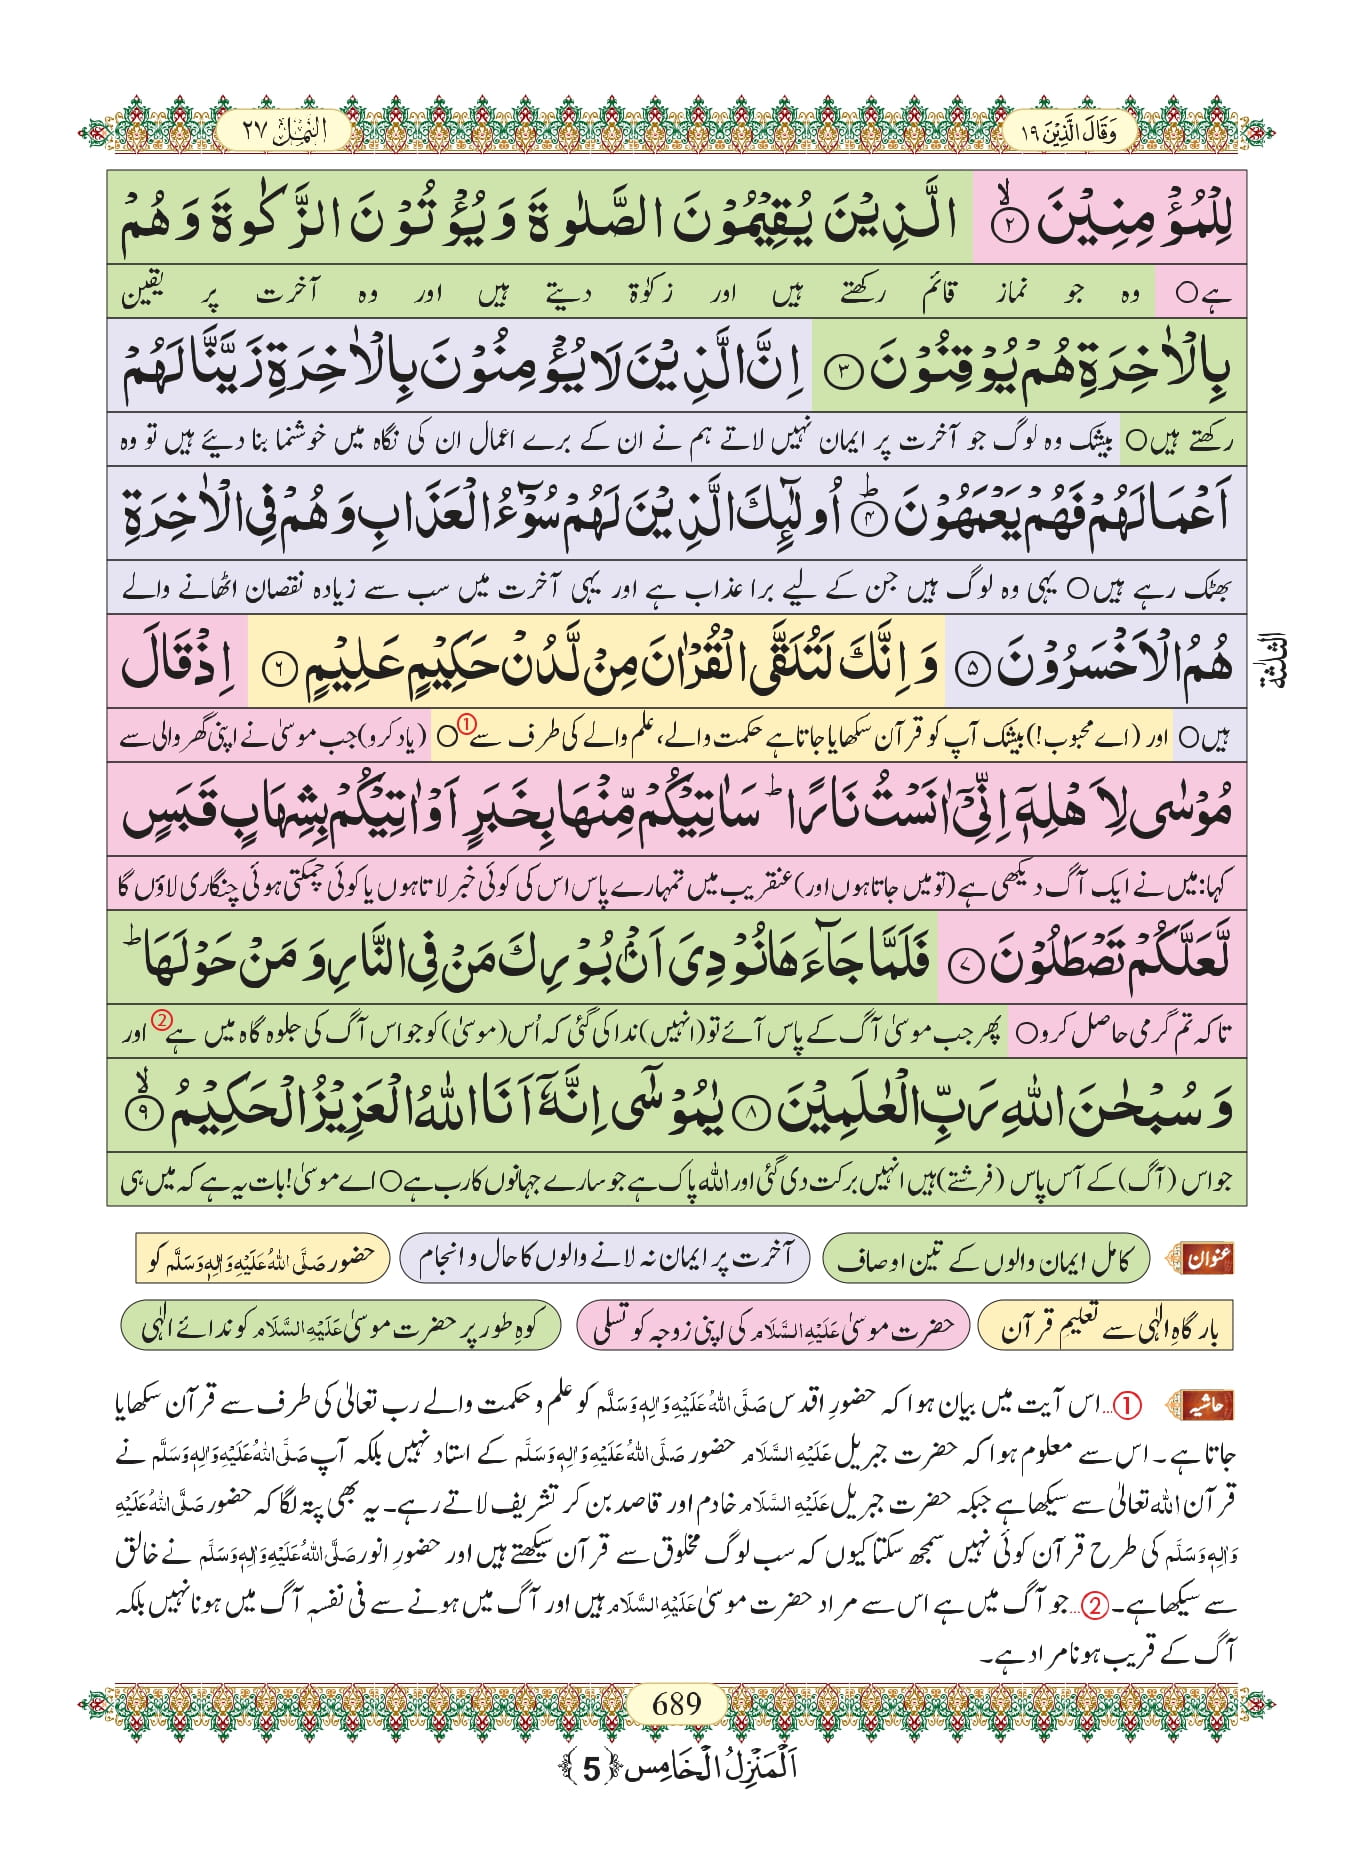 وَقَالَ الَّذِیْنَ ۱۹
النَّمْل ۲۷
لِلْمُؤْمِنِیْنَۙ(۲) الَّذِیْنَ یُقِیْمُوْنَ الصَّلٰوةَ وَ یُؤْتُوْنَ الزَّكٰوةَ وَ هُمْ
ہے○ وہ جو نماز قائم رکھتے ہیں اور زکوٰۃ دیتے ہیں اور وہ آخرت پر یقین
بِالْاٰخِرَةِ هُمْ یُوْقِنُوْنَ(۳) اِنَّ الَّذِیْنَ لَا یُؤْمِنُوْنَ بِالْاٰخِرَةِ زَیَّنَّا لَهُمْ
رکھتے ہیں○ بیشک وہ لوگ جو آخرت پر ایمان نہیں لاتے ہم نے ان کے برے اعمال ان کی نگاہ میں خوشنما بنا دیئے ہیں تو وہ
اَعْمَالَهُمْ فَهُمْ یَعْمَهُوْنَؕ(۴) اُولٰٓىٕكَ الَّذِیْنَ لَهُمْ سُوْٓءُ الْعَذَابِ وَ هُمْ فِی الْاٰخِرَةِ
بھٹک رہے ہیں○ یہی وہ لوگ ہیں جن کے لیے برا عذاب ہے اور یہی آخرت میں سب سے زیادہ نقصان اٹھانے والے
هُمُ الْاَخْسَرُوْنَ(۵) وَ اِنَّكَ لَتُلَقَّى الْقُرْاٰنَ مِنْ لَّدُنْ حَكِیْمٍ عَلِیْمٍ(۶) اِذْ قَالَ
الثلٰثة
ہیں○ اور (اے محبوب!) بیشک آپ کو قرآن سکھایا جاتا ہے حکمت والے، علم والے کی طرف سے①○ (یاد کرو) جب موسیٰ نے اپنی گھر والی سے
مُوْسٰى لِاَهْلِهٖۤ اِنِّیْۤ اٰنَسْتُ نَارًاؕ سَاٰتِیْكُمْ مِّنْهَا بِخَبَرٍ اَوْ اٰتِیْكُمْ بِشِهَابٍ قَبَسٍ
کہا: میں نے ایک آگ دیکھی ہے (تو میں جاتا ہوں اور) عنقریب میں تمہارے پاس اس کی کوئی خبر لاتا ہوں یا کوئی چمکتی ہوئی چنگاری لاؤں گا
لَّعَلَّكُمْ تَصْطَلُوْنَ(۷) فَلَمَّا جَآءَهَا نُوْدِیَ اَنْۢ بُوْرِكَ مَنْ فِی النَّارِ وَ مَنْ حَوْلَهَاؕ
تاکہ تم گرمی حاصل کرو○ پھر جب موسیٰ آگ کے پاس آئے تو (انہیں) ندا کی گئی کہ اُس (موسیٰ) کو جو اس آگ کی جلوہ گاہ میں ہے② اور
وَ سُبْحٰنَ اللّٰهِ رَبِّ الْعٰلَمِیْنَ(۸) یٰمُوْسٰۤى اِنَّهٗۤ اَنَا اللّٰهُ الْعَزِیْزُ الْحَكِیْمُۙ(۹)
جو اس (آگ) کے آس پاس (فرشتے) ہیں انہیں برکت دی گئی اور اللہ پاک ہے جو سارے جہانوں کا رب ہے○ اے موسیٰ! بات یہ ہے کہ میں ہی
عنوان کامل ایمان والوں کے تین اوصاف آخرت پر ایمان نہ لانے والوں کا حال و انجام حضور صَلَّی اللہُ عَلَیْہِ وَاٰلِہٖ وَسَلَّم کو
بارگاہِ الٰہی سے تعلیمِ قرآن حضرت موسیٰ عَلَیْہِ السَّلَام کی اپنی زوجہ کو تسلی کوہِ طور پر حضرت موسیٰ عَلَیْہِ السَّلَام کو ندائے الٰہی
حاشیہ ①...اس آیت میں بیان ہوا کہ حضورِ اقدس صَلَّی اللہُ عَلَیْہِ وَاٰلِہٖ وَسَلَّم کو علم و حکمت والے رب تعالیٰ کی طرف سے قرآن سکھایا
جاتا ہے۔ اس سے معلوم ہوا کہ حضرت جبریل عَلَیْہِ السَّلَام حضور صَلَّی اللہُ عَلَیْہِ وَاٰلِہٖ وَسَلَّم کے استاد نہیں بلکہ آپ صَلَّی اللہُ عَلَیْہِ وَاٰلِہٖ وَسَلَّم نے
قرآن اللہ تعالیٰ سے سیکھا ہے جبکہ حضرت جبریل عَلَیْہِ السَّلَام خادم اور قاصد بن کر تشریف لاتے رہے۔ یہ بھی پتہ لگا کہ حضور صَلَّی اللہُ عَلَیْہِ
وَاٰلِہٖ وَسَلَّم کی طرح قرآن کوئی نہیں سمجھ سکتا کیوں کہ سب لوگ مخلوق سے قرآن سیکھتے ہیں اور حضورِ انور صَلَّی اللہُ عَلَیْہِ وَاٰلِہٖ وَسَلَّم نے خالق
سے سیکھا ہے۔ ②...جو آگ میں ہے اس سے مراد حضرت موسیٰ عَلَیْہِ السَّلَام ہیں اور آگ میں ہونے سے فی نفسہٖ آگ میں ہونا نہیں بلکہ
آگ کے قریب ہونا مراد ہے۔
689
اَلْمَنْزِلُ الْخَامِس ﴿5﴾